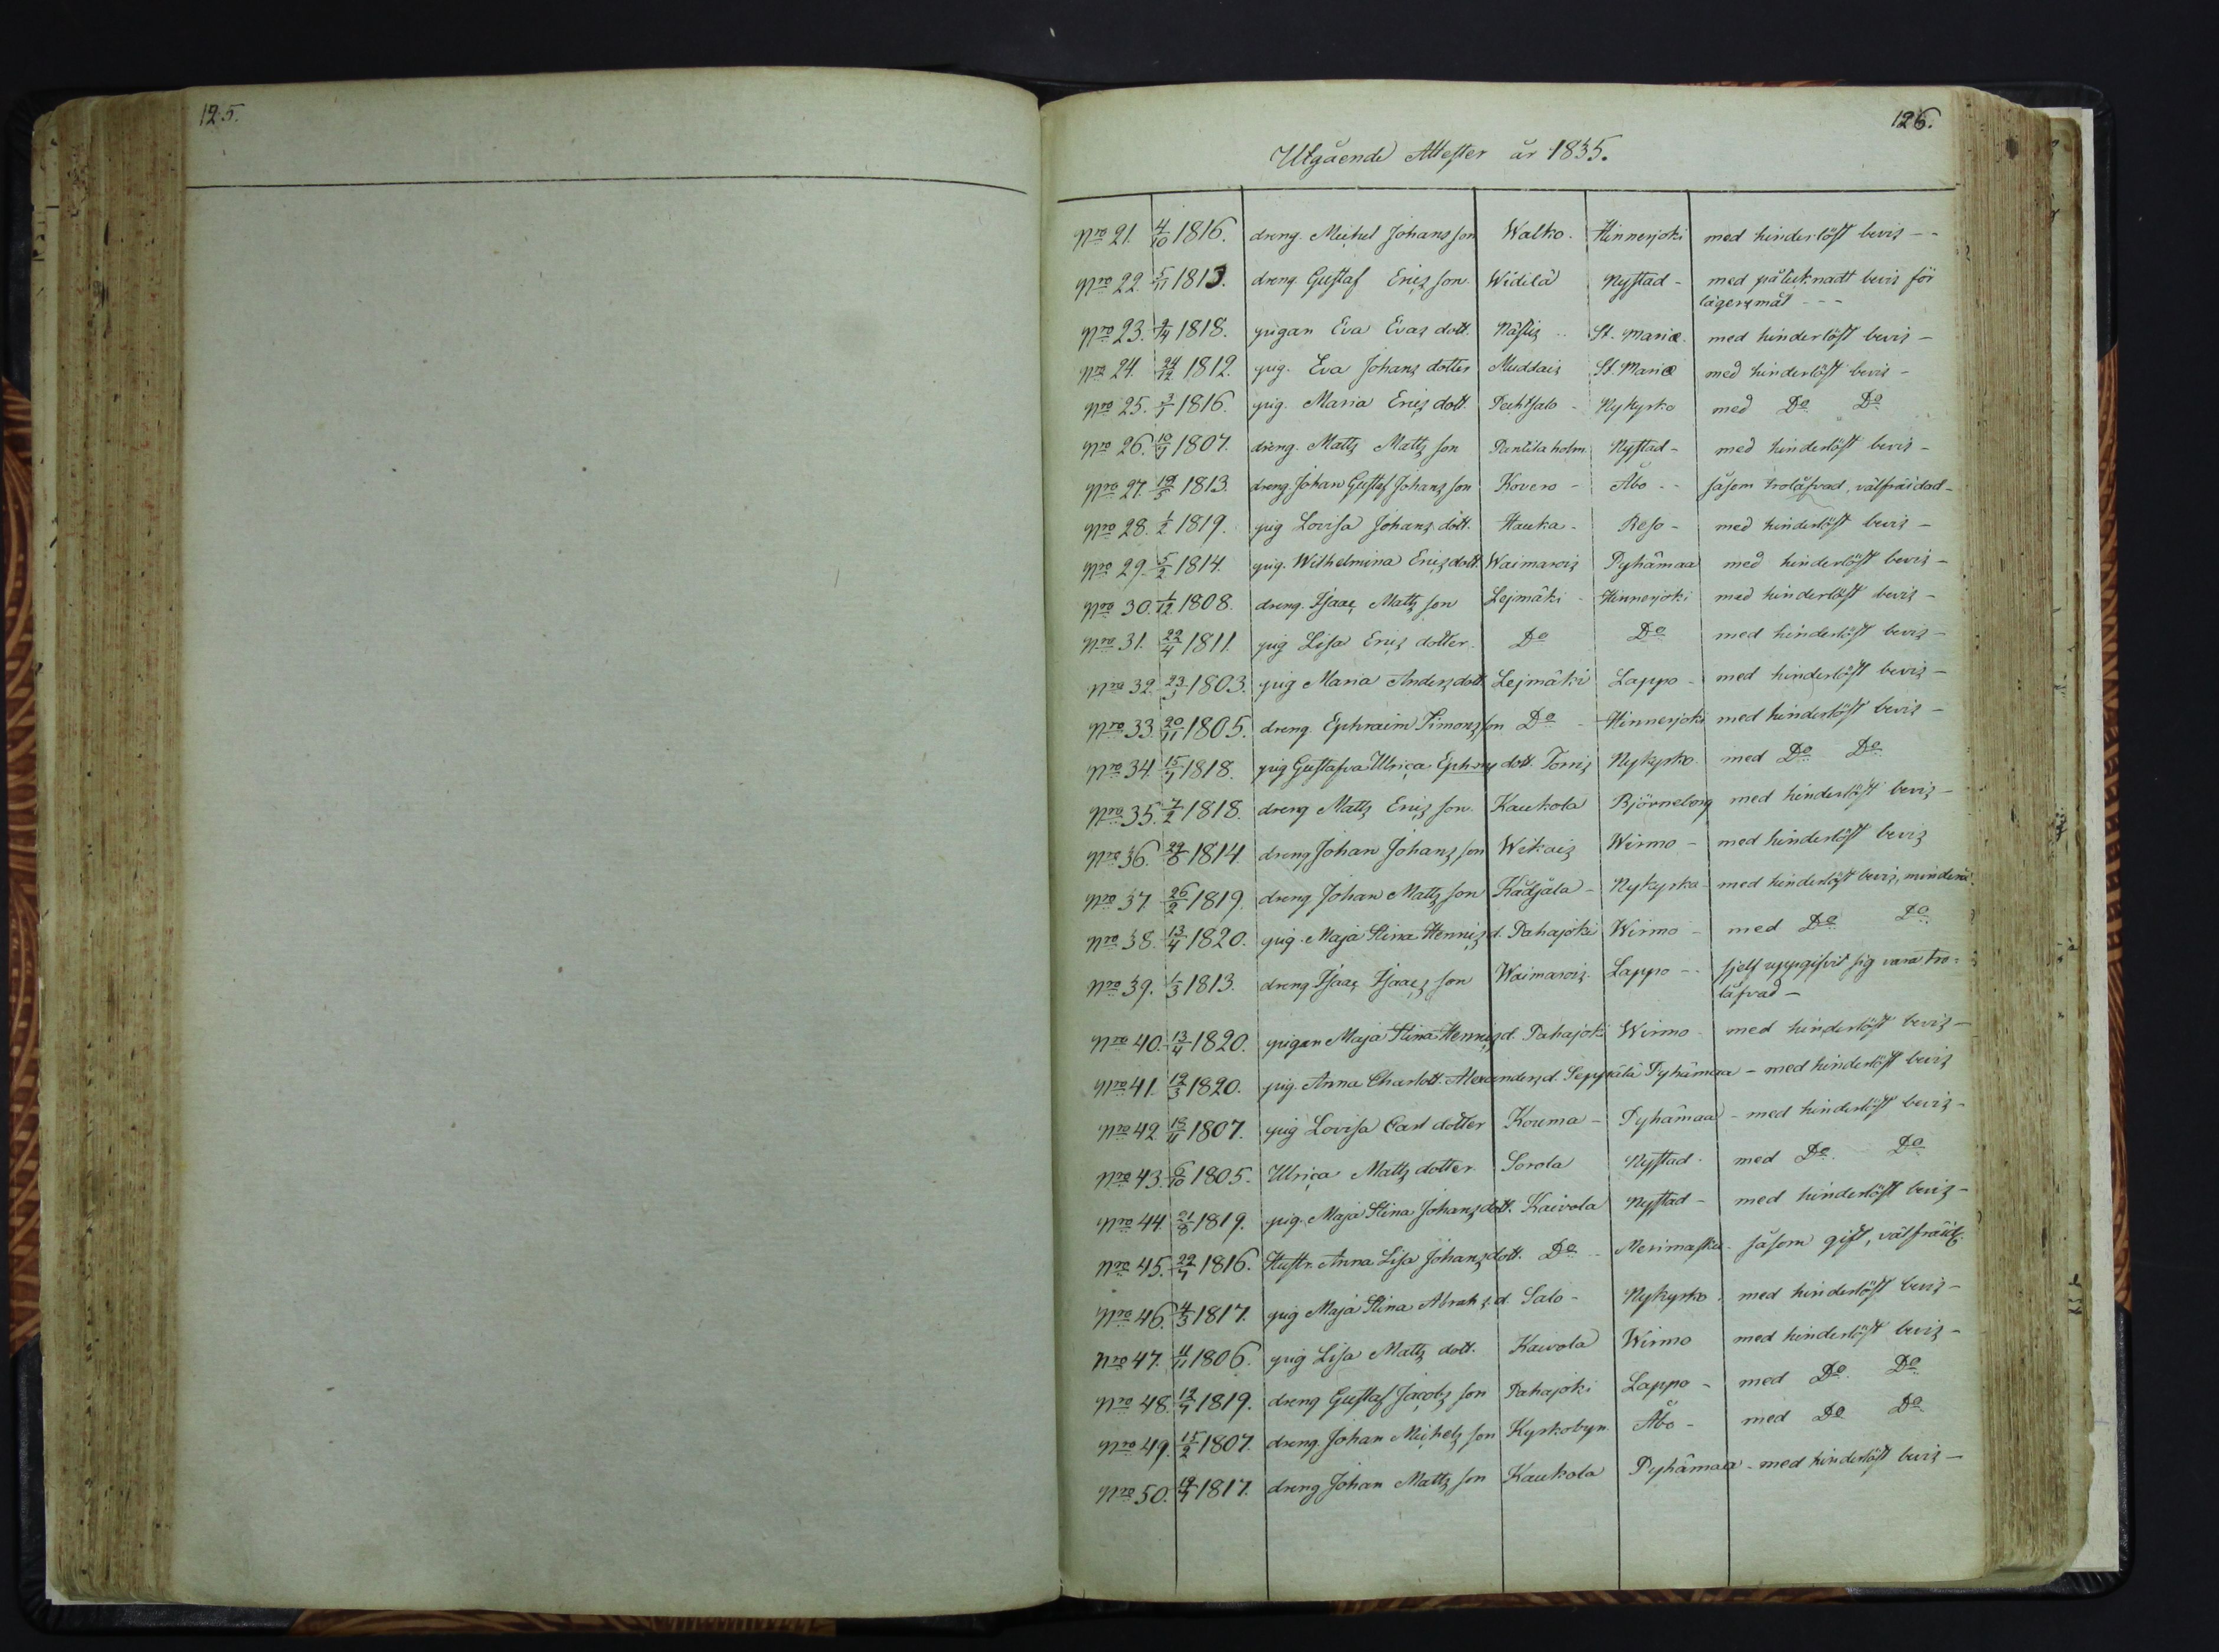 125.
126.
Utgående Attester år 1835.
Nro 21. 4/10 1816. dreng. Michel Johansson Walko. Hinnerjoki med hinderlöst bevis --
Nro 22. 5/11 1813. dreng. Gustaf Ericsson. Widilä Nystad - med påteknadt bevis för
lägersmål ---
Nro 23. 9/4 1818. pigan Eva Evas dott. Nästis .. St. Mariæ. med hinderlöst bevis -
Nro 24. 24/12 1812. pig. Eva Johans dotter Muddais St. Mariæ med hinderlöst bevis -
Nro 25. 3/1 1816. pig. Maria Erics dott. Pachsalo - Nykyrko med Do Do
Nro 26. 10/9 1807. dreng. Matts Mattsson Pantila holm Nystad - med hinderlöst bevis -
Nro 27. 19/5 1813. dreng. Johan Gustaf Johansson Kovero - Åbo -- såsom trolåfvad, välfräidad -
Nro 28. 1/2 1819. pig Lovisa Johans dott. Hauka - Reso - med hinderlöst bevis -
Nro 29. 5/2 1814. pig. Wilhelmina Ericsdott. Waimarois Pyhämaa med hinderlöst bevis -
Nro 30. 1/12 1808. dreng. Isaac Mattsson Lejmäki - Hinnerjoki med hinderlöst bevis -
Nro 31. 22/4 1811. pig Lisa Erics dotter. Do Do med hinderlöst bevis -
Nro 32. 23/1 1803. pig Maria Andersdott. Lejmäki Lappo - med hinderlöst bevis -
Nro 33. 20/11 1805. dreng. Ephraim Simonsson Do - Hinnerjoki med hinderlöst bevis -
Nro 34. 15/9 1818. pig Gustafva Ulrica Ephrs dott. Torris Nykyrko. med Do Do
Nro 35. 7/2 1818. dreng Matts Ericsson. Kaukola Björneborg med hinderlöst bevis -
Nro 36. 29/8 1814. dreng Johan Johansson Wekais Wirmo - med hinderlöst bevis
Nro 37. 26/2 1819. dreng Johan Mattsson Kädjälä - Nykyrko - med hinderlöst bevis, minderå.
Nro 38. 13/4 1820. pig. Maja Stina Henrics d. Pahajoki Wirmo - med Do Do
Nro 39. 1/3 1813. dreng Isaac Isaacsson Waimarois. Lappo -- sjelf uppgifvit sig vara tro=
låfvad -
Nro 40. 13/4 1820. pigan Maja Stina Henrics d. Pahajoki Wirmo - med hinderlöst bevis -
Nro 41. 12/3 1820. pig. Anna Charlott. Alexanders d. Seppälä Pyhämaa - med hinderlöst bevis
Nro 42 18/11 1807. pig Lovisa Carl dotter Kouma - Pyhämaa - med hinderlöst bevis -
Nro 43. 6/10 1805. Ulrica Matts dotter. Sorola Nystad. med Do Do
Nro 44. 21/8 1819. pig. Maja Stina Johansdott. Kaivola Nystad - med hinderlöst bevis -
Nro 45. 22/7 1816. Hustr. Anna Lisa Johansdott. Do -- Merimasku - såsom gift, välfräid.
Nro 46. 4/3 1817. pig Maja Stina Abrahs d. Salo - Nykyrko. med hinderlöst bevis -
Nro 47. 11/11 1806. pig Lisa Matts dott. Kaivola Wirmo med hinderlöst bevis -
Nro 48. 12/7 1819. dreng Gustaf Jacobsson Pahajoki Lappo - med Do Do
Nro 49. 15/2 1807. dreng. Johan Michelsson Kyrkobyn. Åbo - med Do Do
Nro 50. 19/7 1817. dreng Johan Mattsson Kaukola Pyhämaa - med hinderlöst bevis -